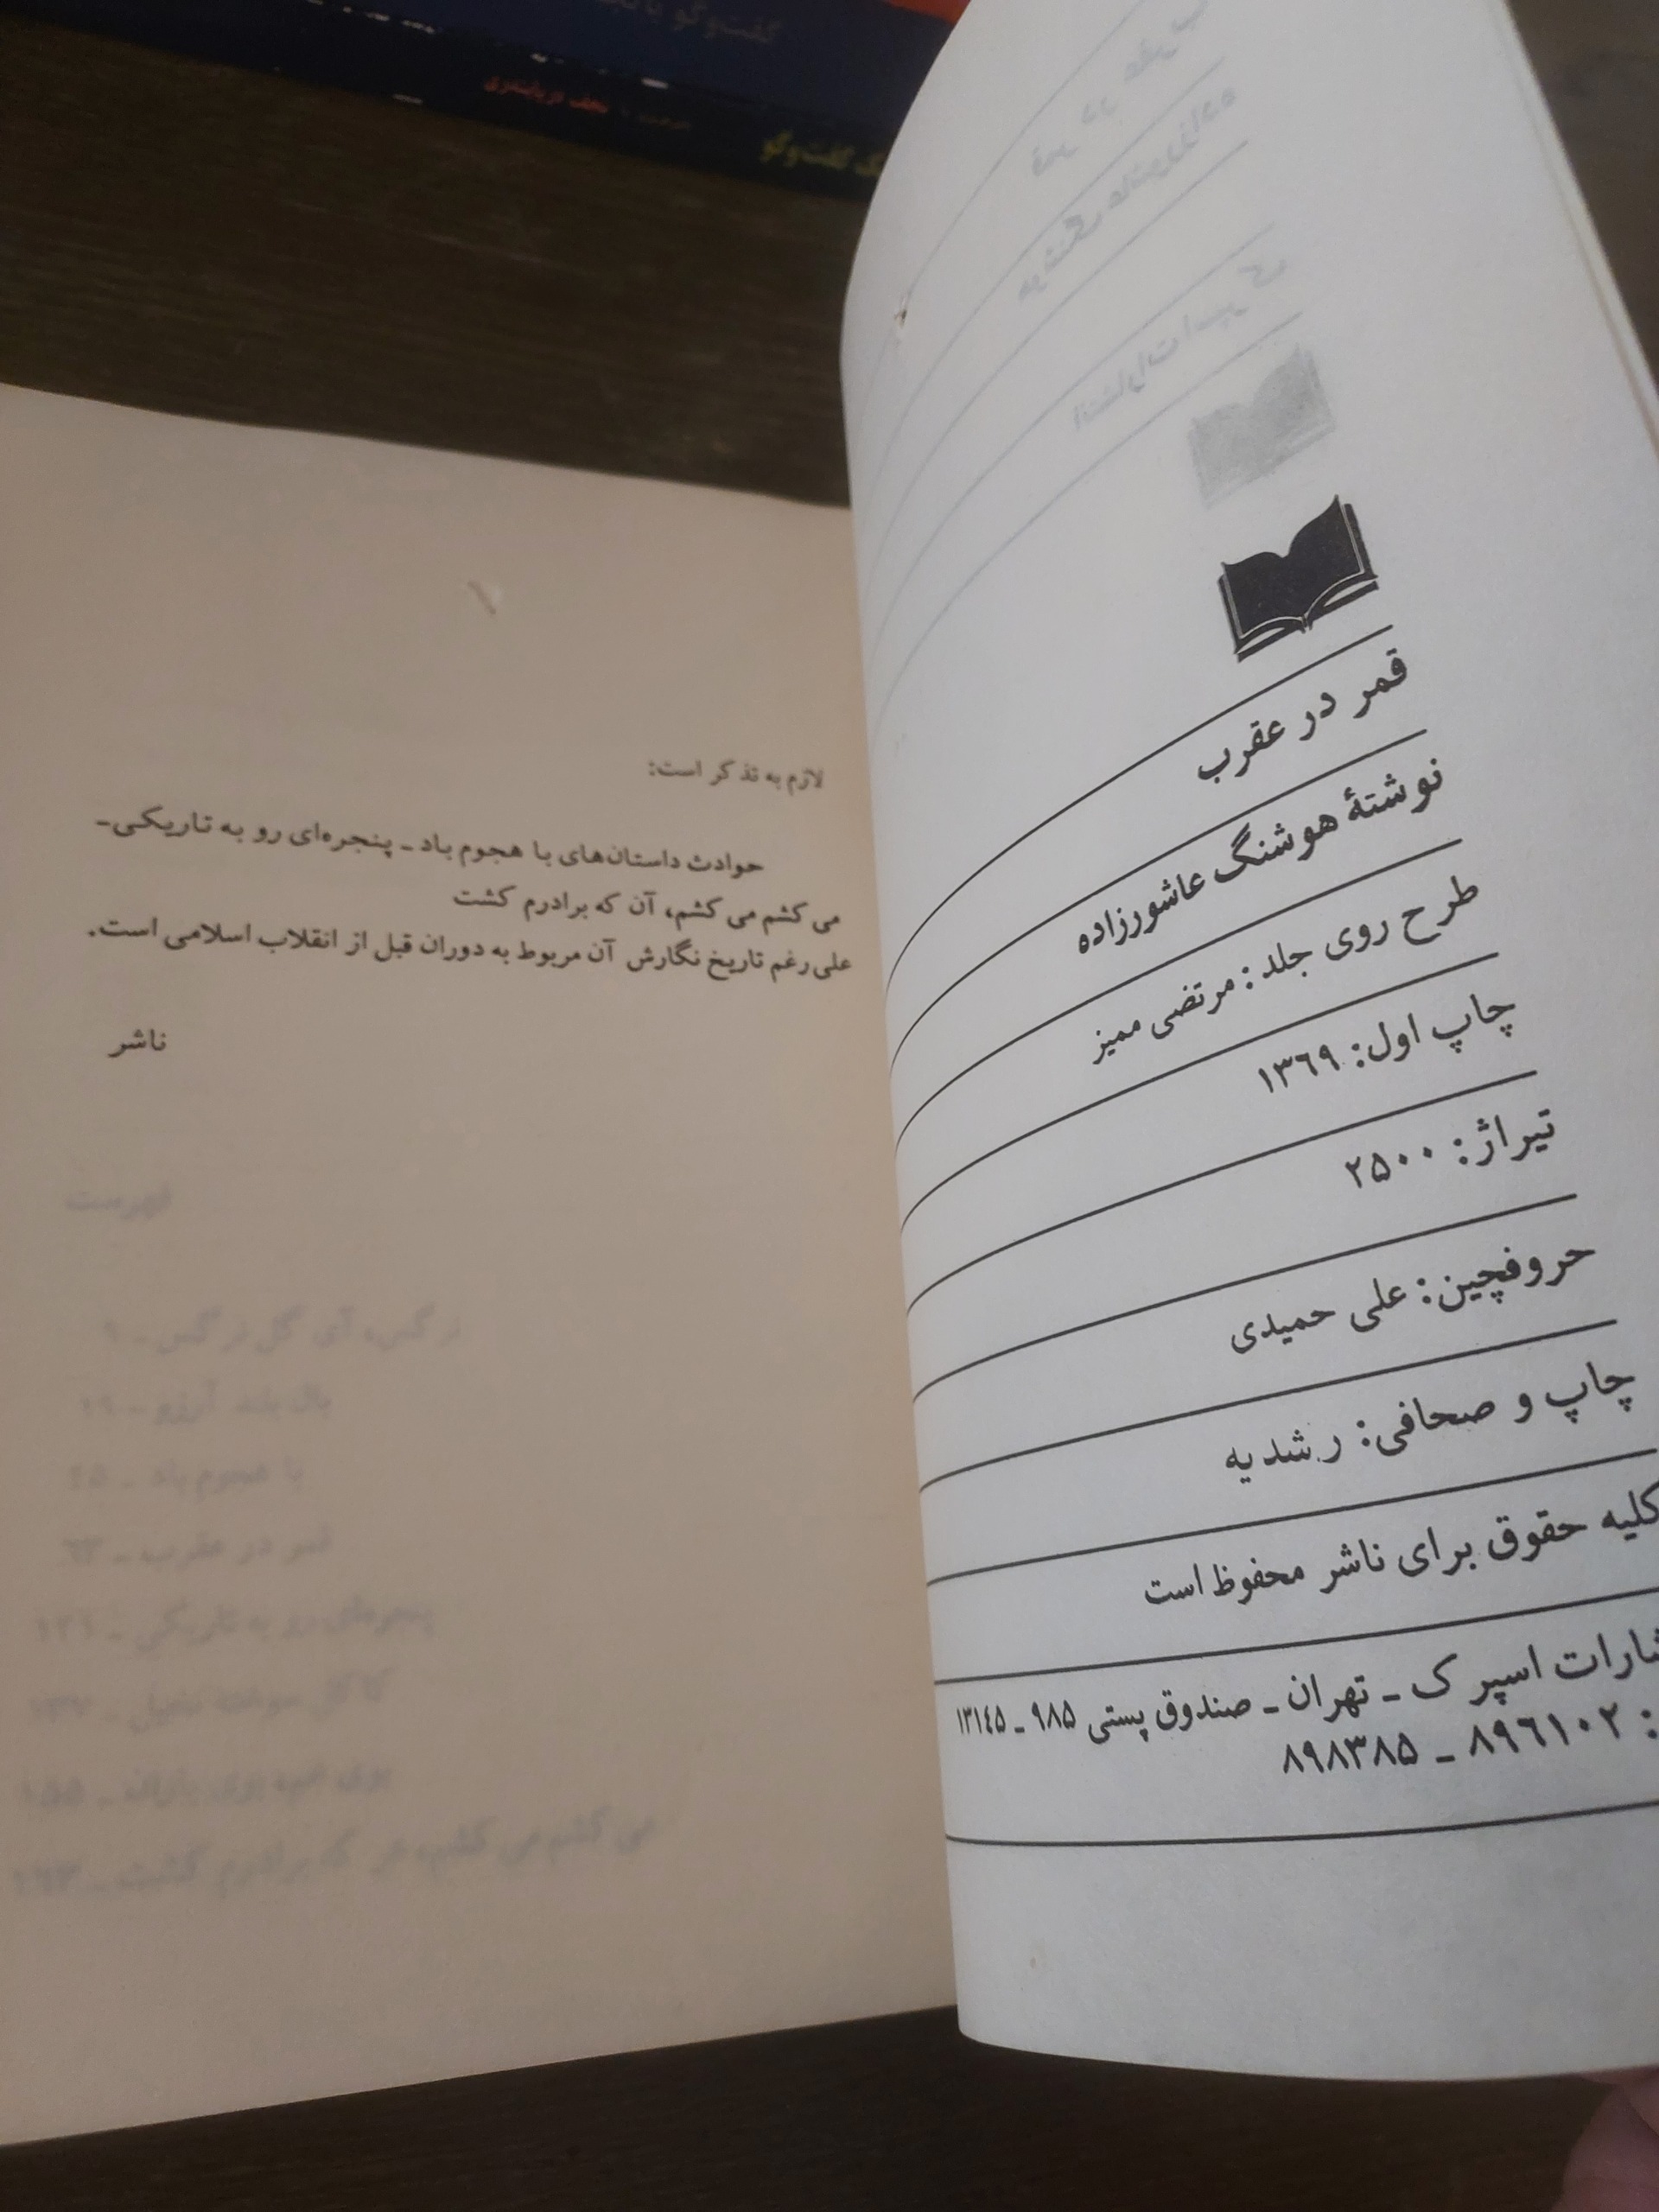 قمر در عقرب
نوشتهٔ هوشنگ عاشورزاده
طرح روی جلد: مرتضی ممیز
چاپ اول: ۱۳۶۹
تیراژ: ۲۵۰۰
حروفچین: علی حمیدی
چاپ و صحافی: رشدیه
کلیه حقوق برای ناشر محفوظ است
اسپرک ـ تهران ـ صندوق پستی ۹۸۵ ـ ۱۳۱۴۵
: ۸۹۶۱۰۲ ـ ۸۹۸۳۸۵
لازم به تذکر است:
حوادث داستان‌های با هجوم باد ـ پنجره‌ای رو به تاریکی ـ
می کشم می کشم، آن که برادرم کشت
علی رغم تاریخ نگارش آن مربوط به دوران قبل از انقلاب اسلامی است.
ناشر
گفت‌وگو با
نجف دریابندری
گفت‌وگو